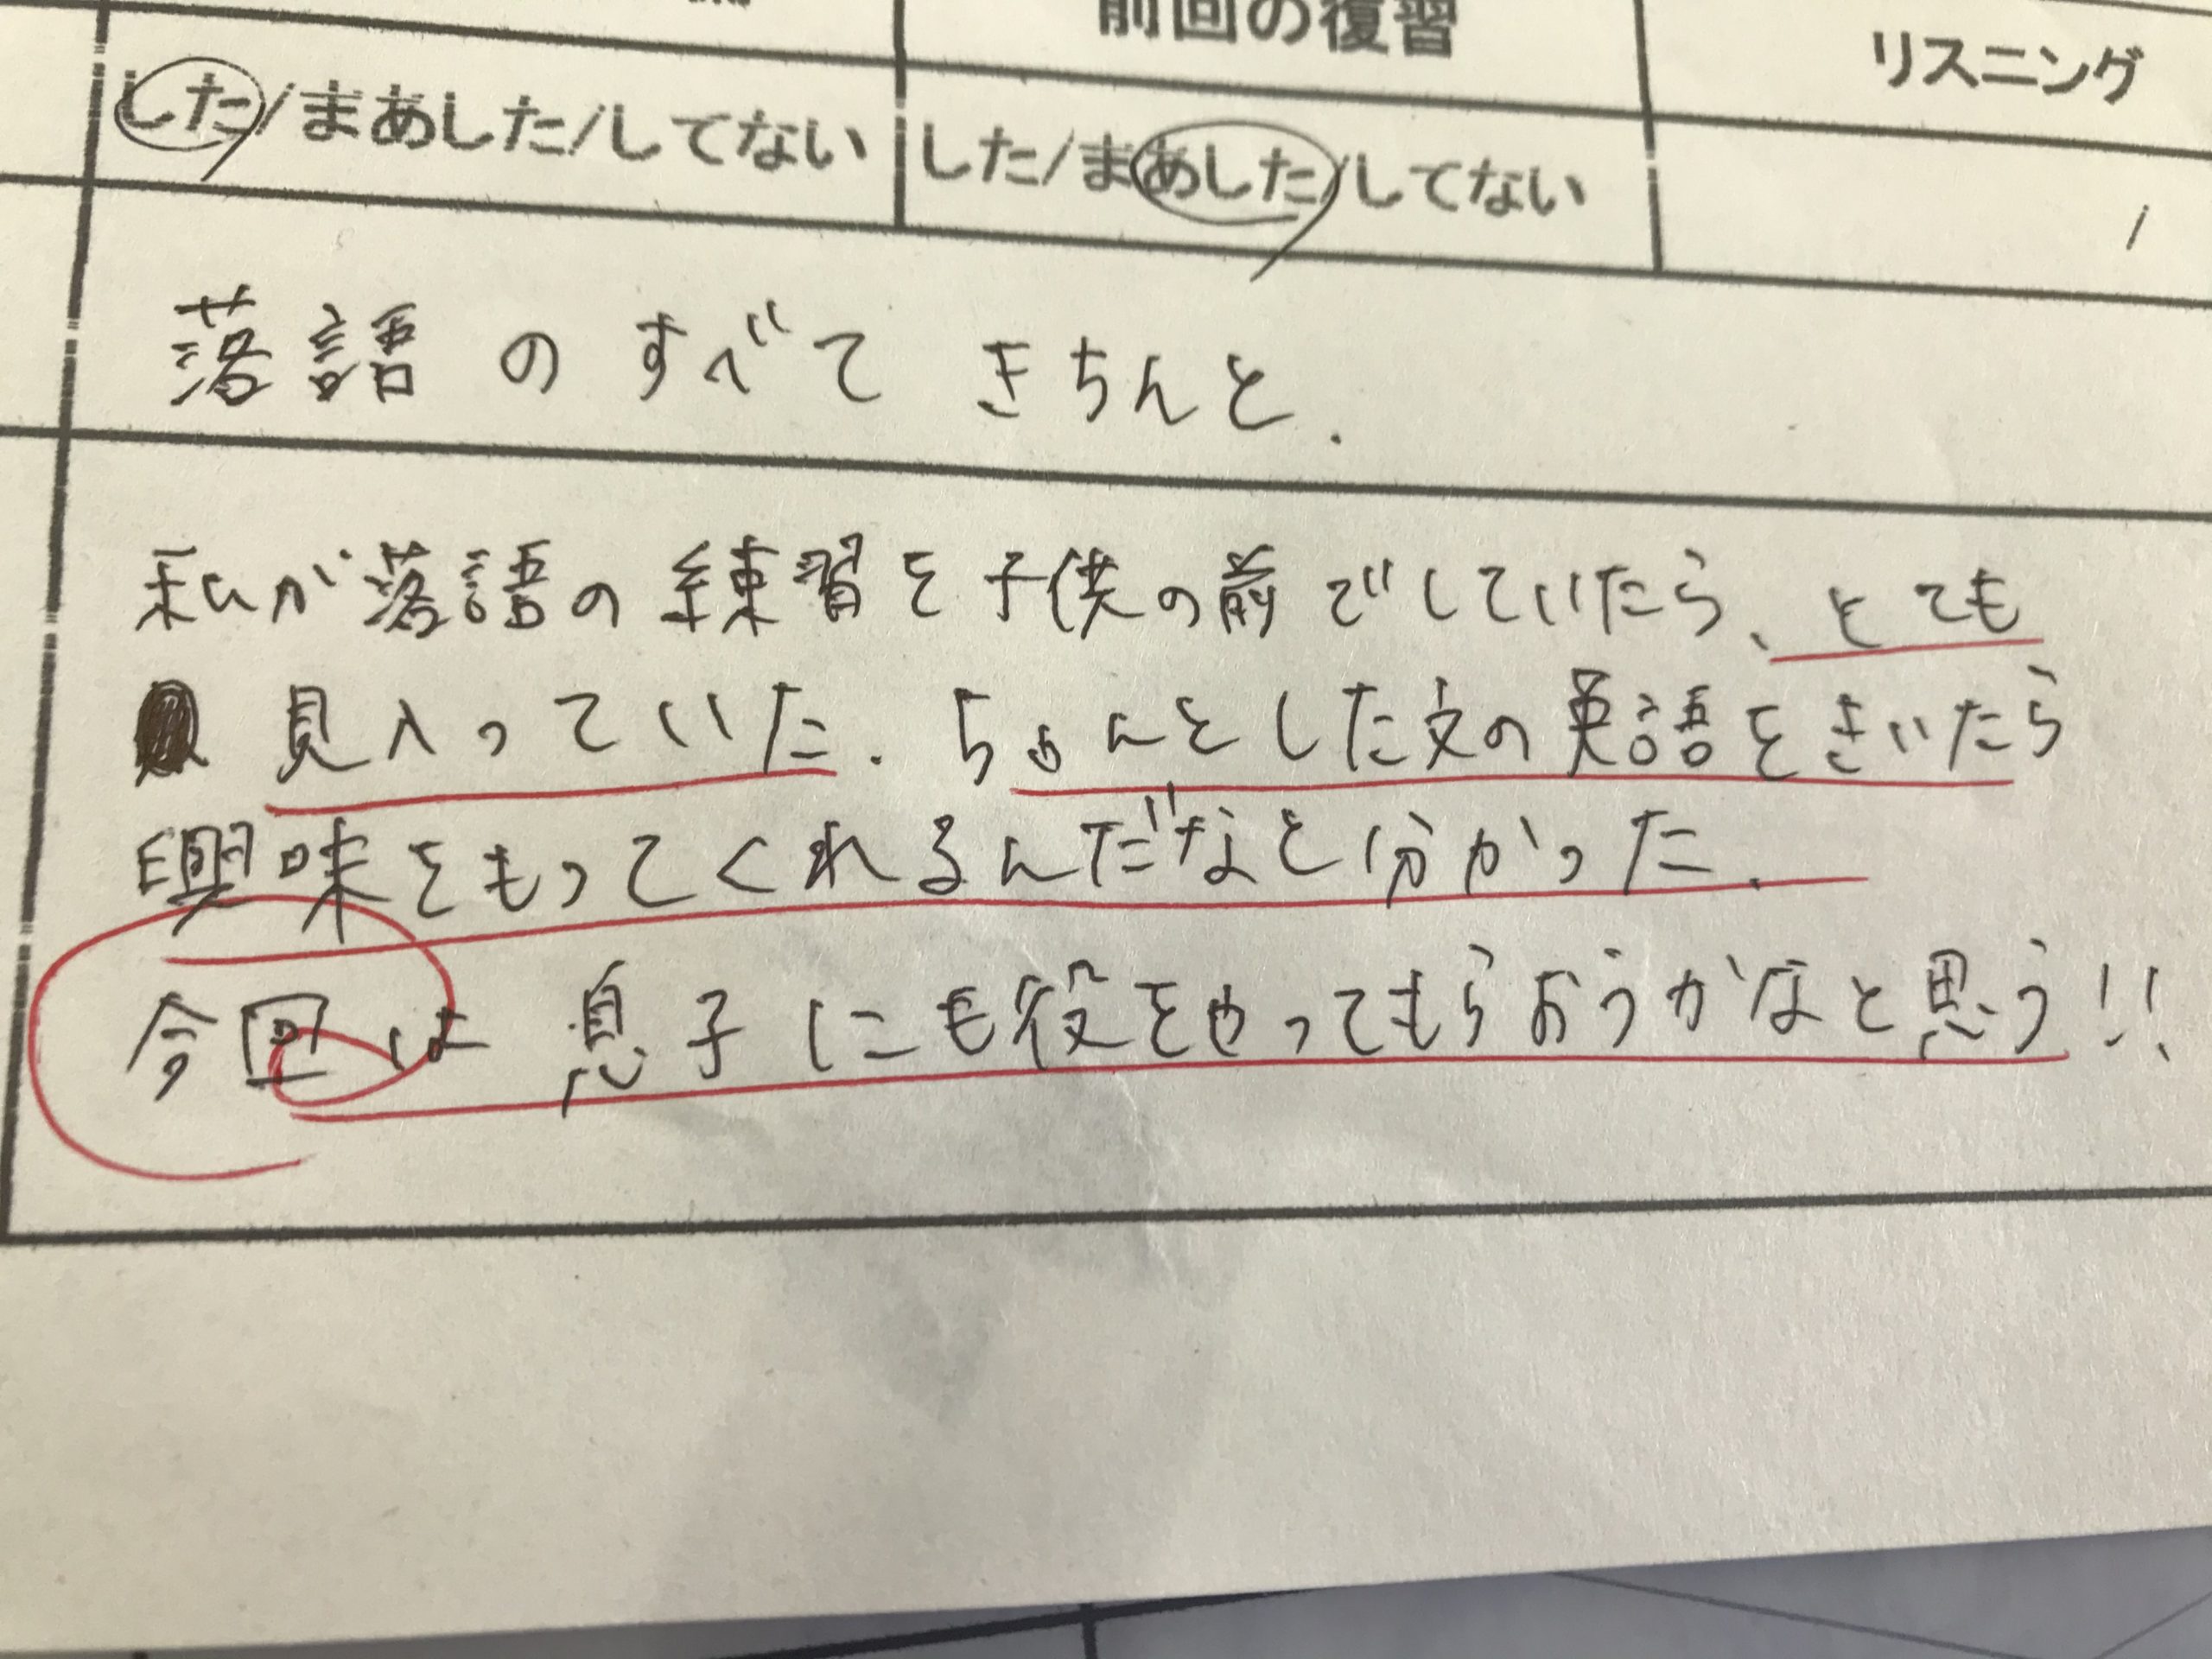 前回の復習
リスニング
した/まあした/してない
した/まあした/してない
落語のすべてきちんと.
私が落語の練習を子供の前でしていたら、とても
見入っていた. ちゃんとした文の英語をきいたら
興味をもってくれるんだなと分かった.
今回は息子にも役をやってもらおうかなと思う!!